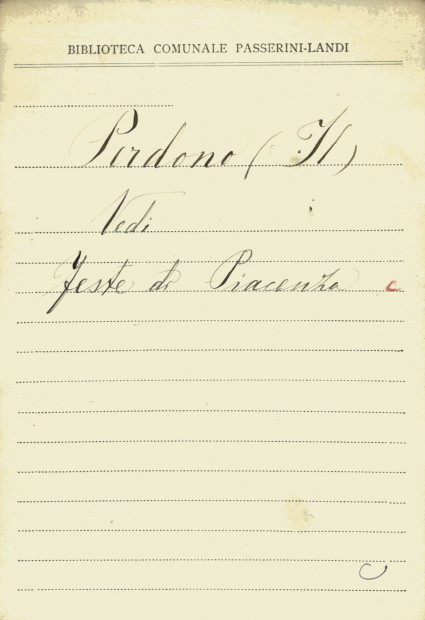 BIBLIOTECA COMUNALE PASSERINI-LANDI
Perdono ( Il )
Vedi
Feste di Piacenza c
C